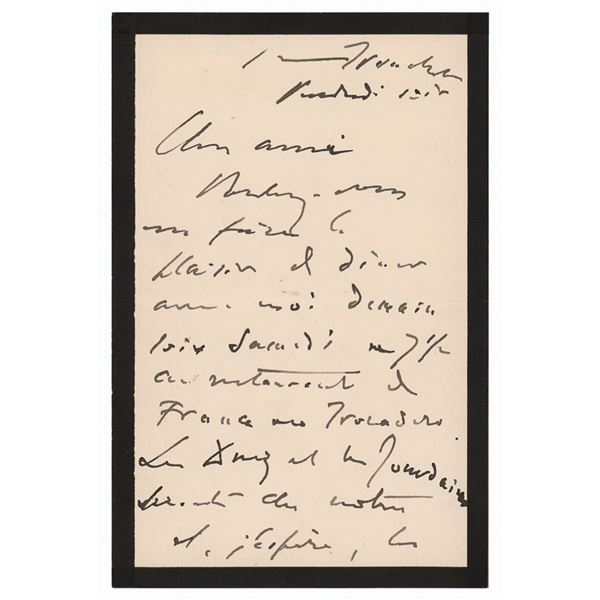 Vendredi soir
ami
Voulez-vous
me faire le
plaisir de dîner
avec moi demain
soir Samedi a 7 1/2
au restaurant de
France au Trocadero
Les et les Jourdain
seront des notres
et, j'espère, les